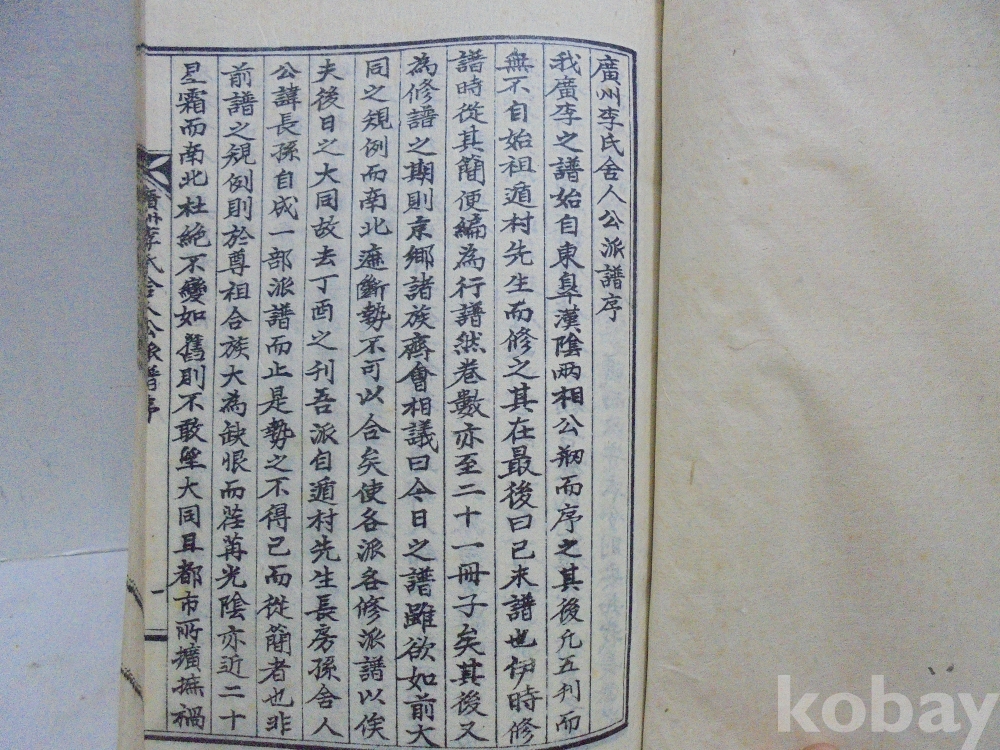 廣州李氏舍人公派譜序
我廣李之譜始自東皐漢陰兩相公刱而序之其後凡五刊而
無不自始祖遁村先生而修之其在最後曰己未譜也伊時修
譜時從其簡便編為行譜然卷數亦至二十一冊子矣其後又
為修譜之期則京鄉諸族齊會相議曰今日之譜雖欲如前大
同之規例而南北遮斷勢不可以合矣使各派各修派譜以俟
夫後日之大同故去丁酉之刊吾派自遁村先生長房孫舍人
公諱長孫自成一部派譜而止是勢之不得已而從簡者也非
前譜之規例則於尊祖合族大為缺恨而荏苒光陰亦近二十
星霜而南北杜絶不變如舊則不敢望大同且都市所擴撫禍
廣州李氏舍人公派譜序
一
kobay